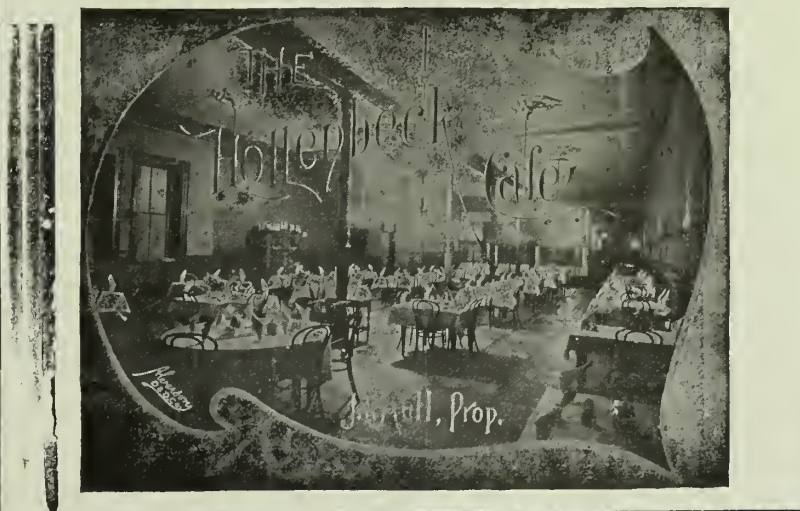 THE
Hollenbeck
Cafe
Prop.